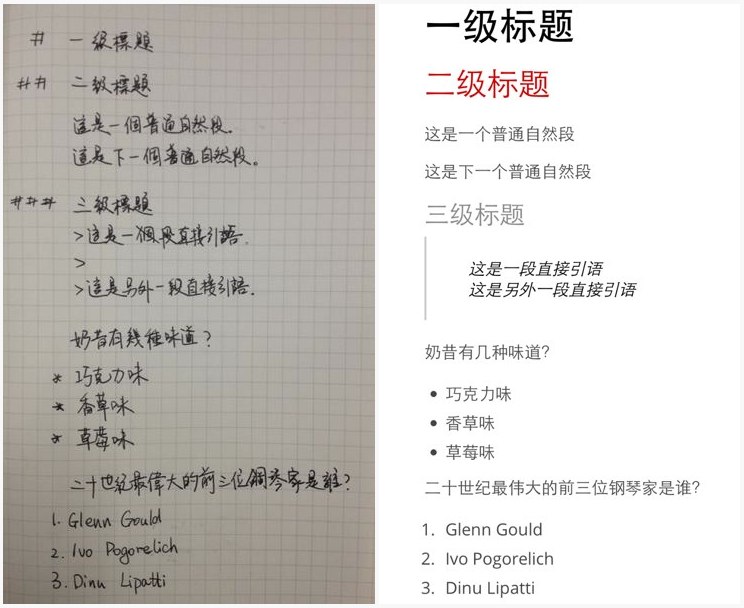 # 一級標題
## 二級標題
這是一個普通自然段。
這是下一個普通自然段。
### 三級標題
>這是一個段直接引語.
>
>這是另外一段直接引語.
奶昔有幾種味道?
* 巧克力味
* 香草味
* 草莓味
二十世紀最偉大的前三位鋼琴家是誰?
1. Glenn Gould
2. Ivo Pogorelich
3. Dinu Lipatti
一级标题
二级标题
这是一个普通自然段
这是下一个普通自然段
三级标题
这是一段直接引语
这是另外一段直接引语
奶昔有几种味道?
• 巧克力味
• 香草味
• 草莓味
二十世纪最伟大的前三位钢琴家是谁?
1. Glenn Gould
2. Ivo Pogorelich
3. Dinu Lipatti